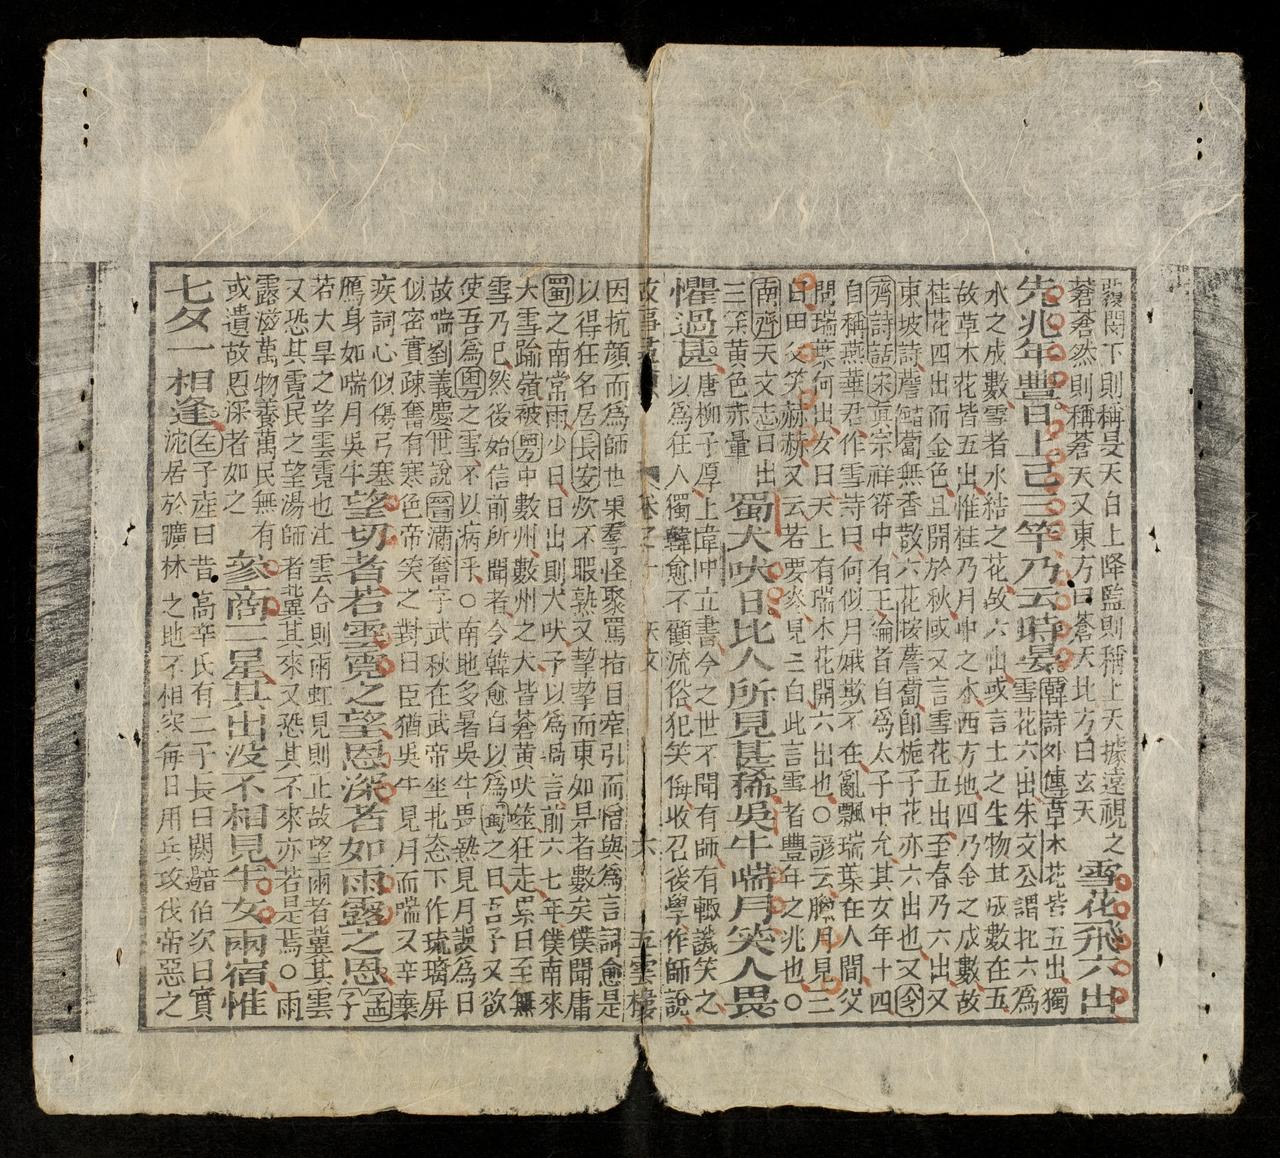 覆閔下則稱旻天自上降監則稱上天據遠視之
蒼蒼然則稱蒼天又東方曰蒼天北方曰玄天
雪花飛六出
先兆年豐日上已三竿乃云時晏
韓詩外傳草木花皆五出獨
雪花六出朱文公謂北六爲
水之成數雪者水結之花故六出或言土之生物其成數在五
故草木花皆五出惟桂乃月中之木西方地四乃金之成數故
桂花四出而金色且開於秋或又言雪花五出至春乃六出又
東坡詩薝蔔無香散六花按薝蔔卽梔子花亦六出也又今
齊詩話宋眞宗祥符中有王淪者自爲太子中允其女年十四
自稱燕華君作雪詩曰何似月娥欺不在亂飄瑞葉在人間父
問瑞葉何出女曰天上有瑞木花開六出也〇諺云臘月見三
白田父笑赫赫又云若要麥見三白此言雪者豐年之兆也〇
南齊天文志曰日出
三竿黄色赤暈
蜀犬吠日比人所見甚稀吳牛喘月笑人畏
懼過甚
唐柳子厚上韋中立書今之世不聞有師有輙譏笑之
以爲狂人獨韓愈不顧流俗犯笑侮收召後學作師說
故事
卷之一
天文
六
五雲樓
因抗顏而爲師世果羣怪聚罵指目牽引而增與爲言詞愈是
以得狂名居長安炊不暇熟又挈挈而東如是者數矣僕聞庸
蜀之南常雨少日日出則犬吠予以爲過言前六七年僕南來
大雪踰嶺被粵中數州數州之犬皆蒼黄吠噬狂走累日至無
雪乃已然後始信前所聞者今韓愈自以爲蜀之日吾子又欲
使吾爲粵之雪不以病乎〇南地多暑吳牛畏熱見月誤爲日
故喘劉義慶世說晉滿奮字武秋在武帝坐北窓下作琉璃屏
似密實疎奮有寒色帝笑之對曰臣猶吳牛見月而喘又辛棄
疾詞心似傷弓塞
鴈身如喘月吳牛
望切者若雲霓之望恩深者如雨露之恩
孟子
若大旱之望雲霓也注雲合則雨虹見則止故望雨者冀其雲
又恐其霓民之望湯師者冀其來又恐其不來亦若是焉〇雨
露滋萬物養萬民無有
或遺故恩深者如之
參商二星其出没不相見牛女兩宿惟
七夕一相逢
左子產曰昔高辛氏有二子長曰閼伯次曰實
沈居於曠林之地不相容每日用兵攻伐帝惡之